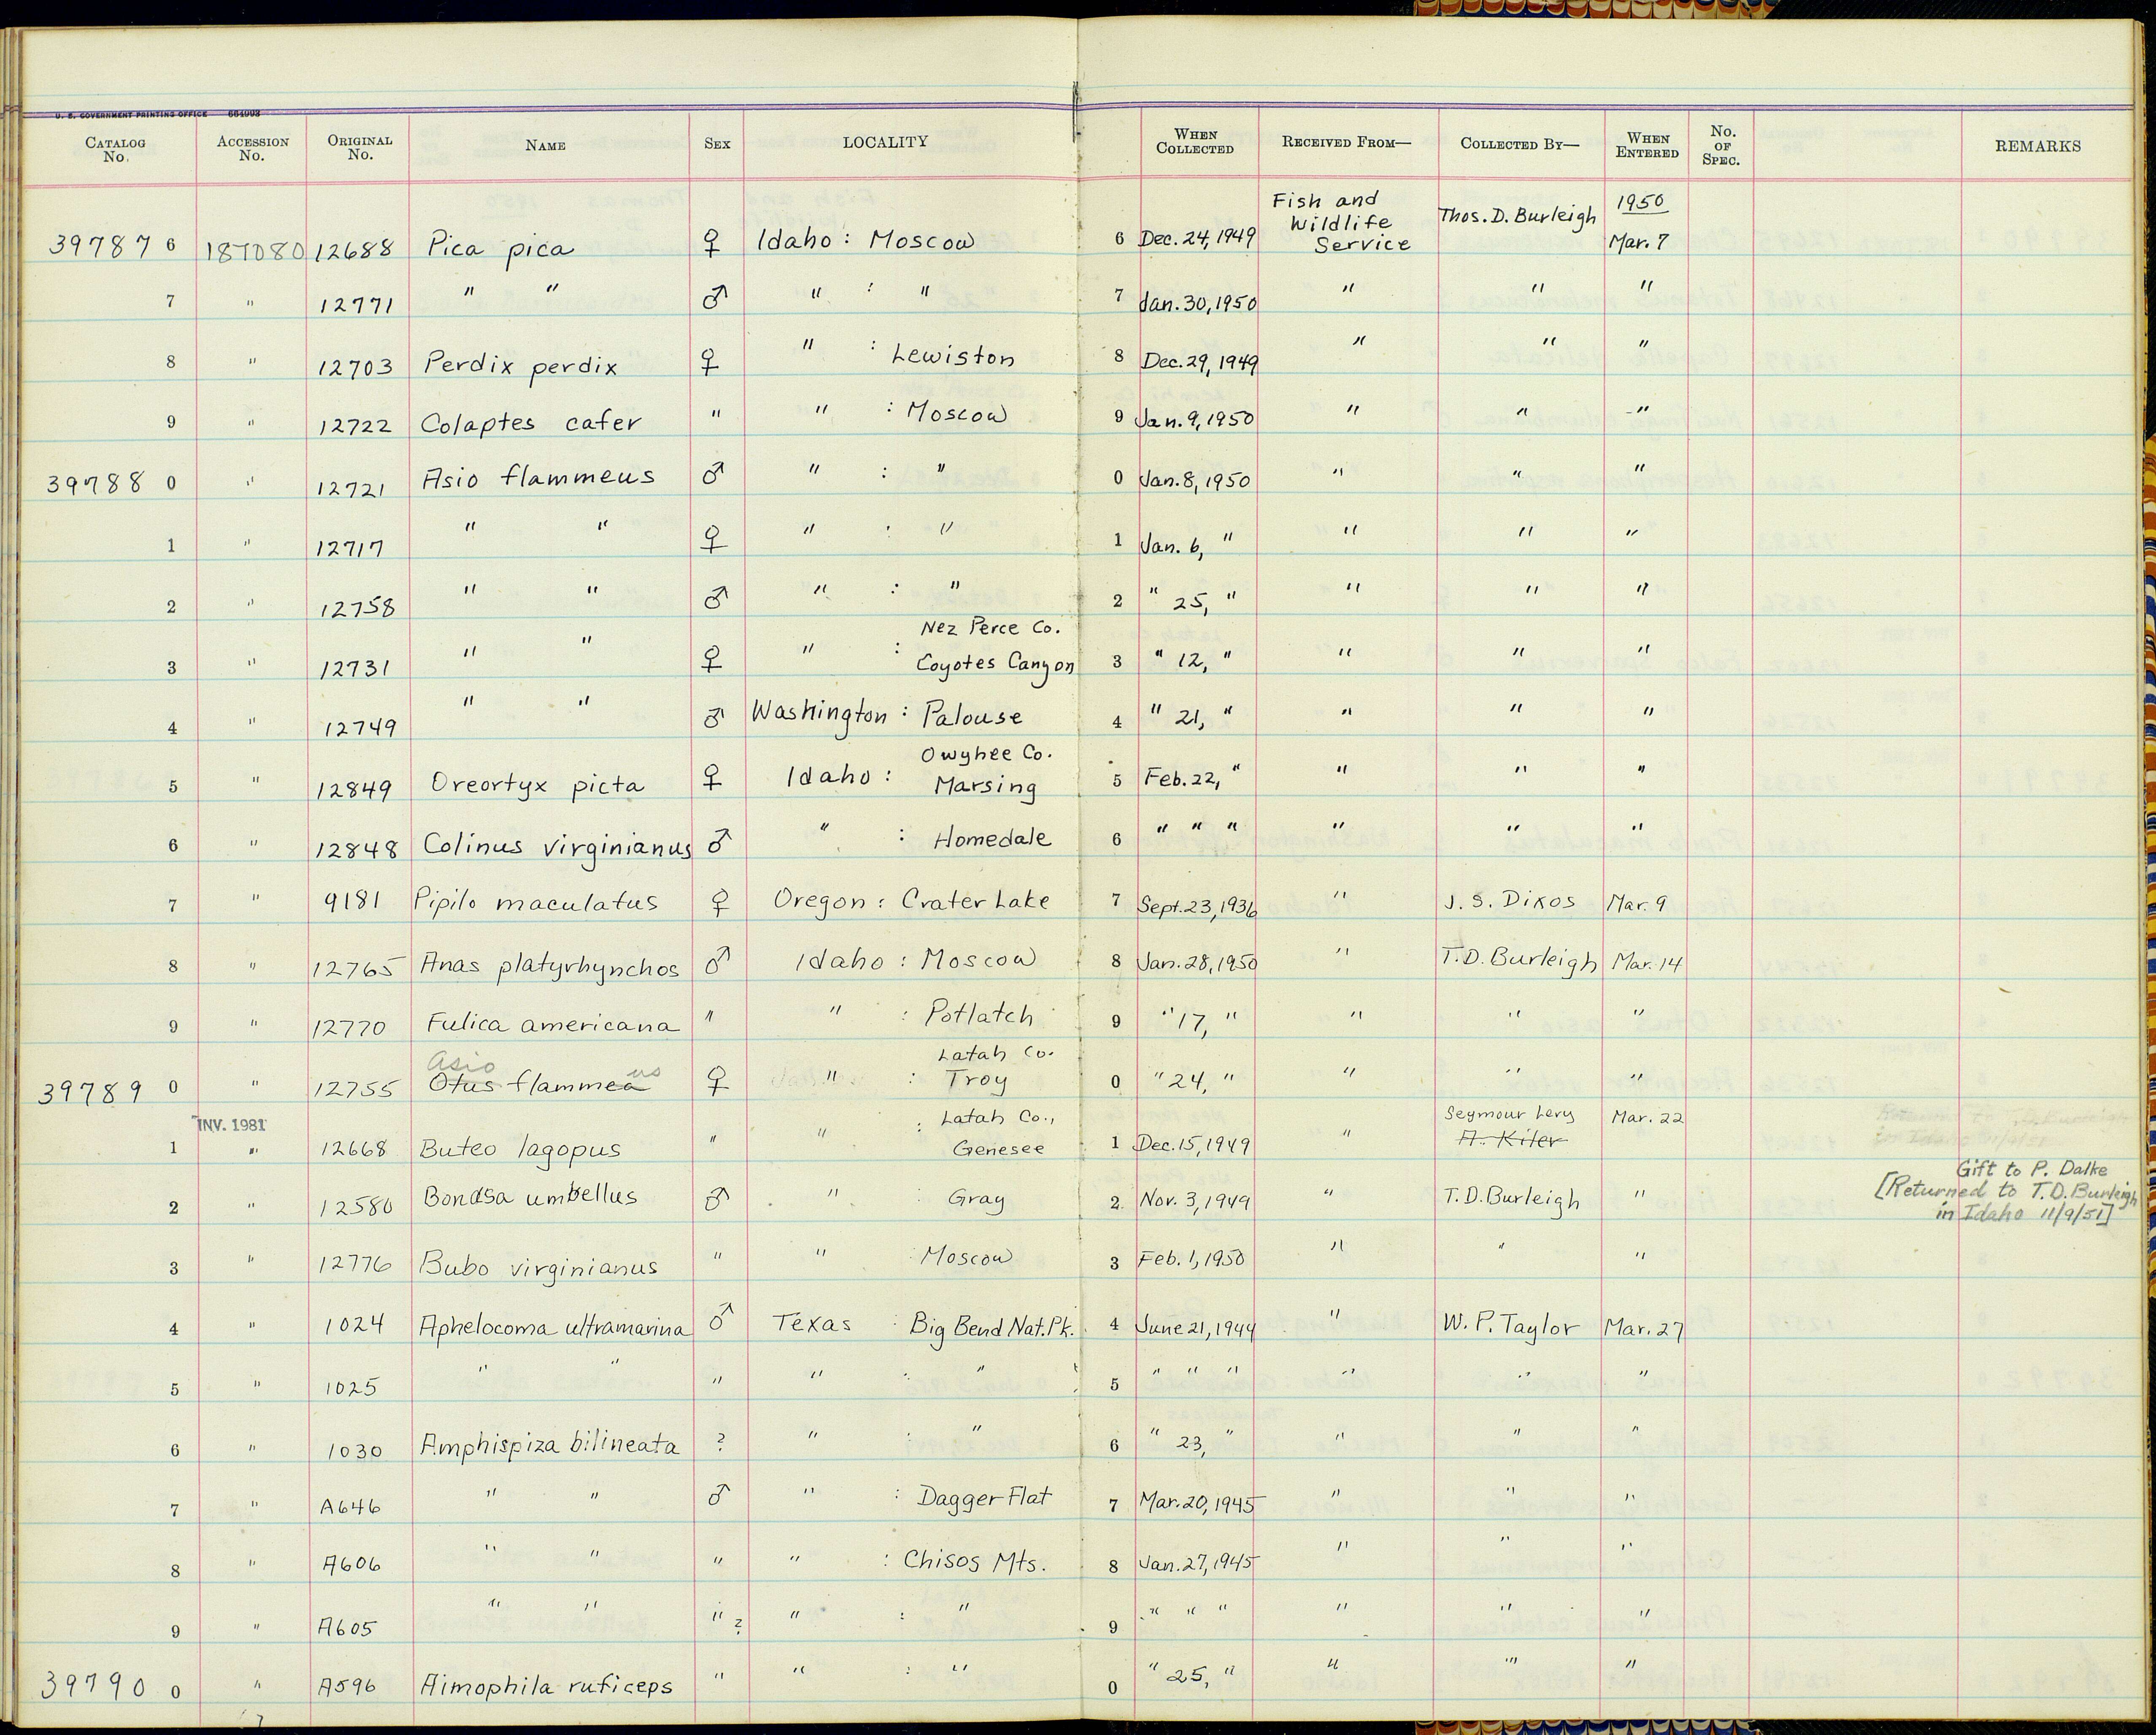 U. S. GOVERNMENT PRINTING OFFICE 664998
CATALOG No. ACCESSION No. ORIGINAL No. NAME SEX LOCALITY WHEN COLLECTED RECEIVED FROM— COLLECTED BY— WHEN ENTERED No. OF SPEC. REMARKS
39787 6 187080 12688 Pica pica ♀ Idaho : Moscow 6 Dec. 24, 1949 Fish and Wildlife Service Thos. D. Burleigh 1950 Mar. 7
7 " 12771 " " ♂ " : " 7 Jan. 30, 1950 " " "
8 " 12703 Perdix perdix ♀ " : Lewiston 8 Dec. 29, 1949 " " "
9 " 12722 Colaptes cafer " " : Moscow 9 Jan. 9, 1950 " " "
39788 0 " 12721 Asio flammeus ♂ " : " 0 Jan. 8, 1950 " " "
1 " 12717 " " ♀ " : " 1 Jan. 6, " " " "
2 " 12758 " " ♂ " : " 2 " 25, " " " "
3 " 12731 " " ♀ " : Nez Perce Co. Coyotes Canyon 3 " 12, " " " "
4 " 12749 " " ♂ Washington : Palouse 4 " 21, " " " "
5 " 12849 Oreortyx picta ♀ Idaho : Owyhee Co. Marsing 5 Feb. 22, " " " "
6 " 12848 Colinus virginianus ♂ " : Homedale 6 " " " " " "
7 " 9181 Pipilo maculatus ♀ Oregon : Crater Lake 7 Sept. 23, 1936 " J. S. Dixos Mar. 9
8 " 12765 Anas platyrhynchos ♂ Idaho : Moscow 8 Jan. 28, 1950 " T. D. Burleigh Mar. 14
9 " 12770 Fulica americana " " : Potlatch 9 " 17, " " " "
Asio us
39789 0 " 12755 Otus flammea ♀ " : Latah Co. Troy 0 " 24, " " " "
INV. 1981
1 " 12668 Buteo lagopus " " : Latah Co., Genesee 1 Dec. 15, 1949 " Seymour Levy A. Kiler Mar. 22
2 " 12580 Bonasa umbellus ♂ " : Gray 2 Nov. 3, 1949 " T. D. Burleigh " Gift to P. Dalke
[Returned to T. D. Burleigh
in Idaho 11/9/51]
3 " 12776 Bubo virginianus " " : Moscow 3 Feb. 1, 1950 " " "
4 " 1024 Aphelocoma ultramarina ♂ Texas : Big Bend Nat. Pk. 4 June 21, 1944 " W. P. Taylor Mar. 27
5 " 1025 " " " " : " 5 " " " " " "
6 " 1030 Amphispiza bilineata ? " : " 6 " 23, " " " "
7 " A646 " " ♂ " : Dagger Flat 7 Mar. 20, 1945 " " "
8 " A606 " " " " : Chisos Mts. 8 Jan. 27, 1945 " " "
9 " A605 " " " ? " : " 9 " " " " " "
39790 0 " A596 Aimophila ruficeps " " : " 0 " 25, " " " "